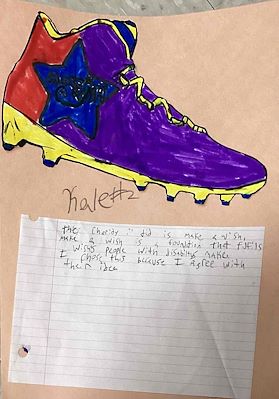 Kaletta
the Charity i did is make a wish,
make a wish is a foundation that fulfils
wishs people with disabilitys makes
I chose this because I agree with
their idea